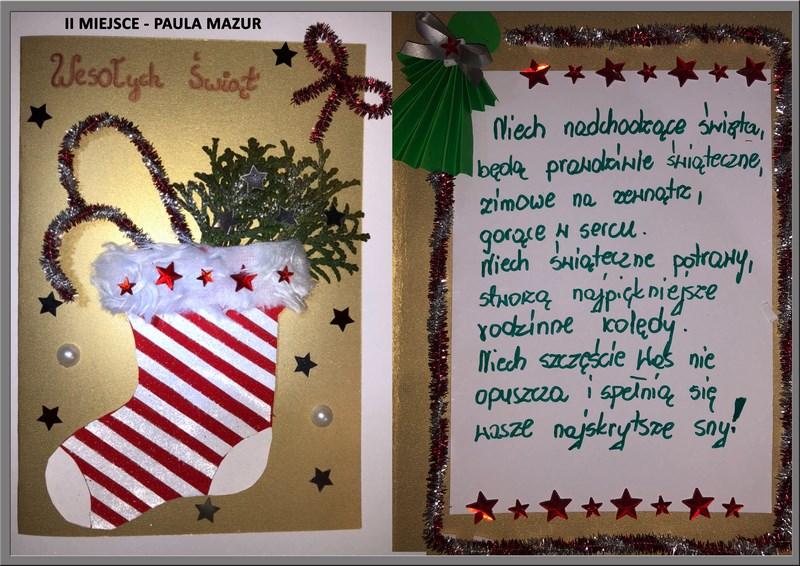 II MIEJSCE - PAULA MAZUR
Wesołych Świąt
Niech nadchodzące święta,
będą prawdziwie świąteczne,
zimowe na zewnątrz,
gorące w sercu.
Niech świąteczne potrawy,
stworzą najpiękniejsze
rodzinne kolędy.
Niech szczęście Was nie
opuszcza i spełnią się
wasze najskrytsze sny!